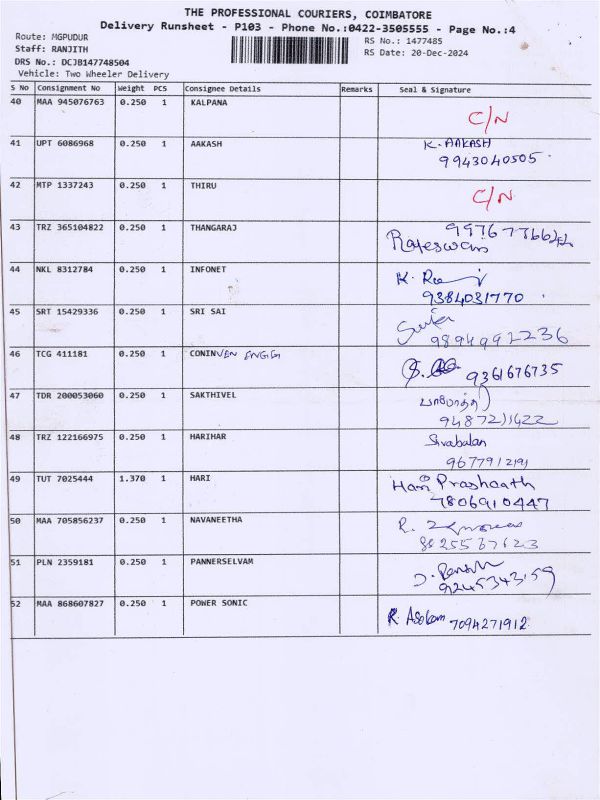 THE PROFESSIONAL COURIERS, COIMBATORE
Delivery Runsheet - P103 - Phone No.:0422-3505555 - Page No.:4
Route: MGPUDUR
RS No.: 1477485
Staff: RANJITH
RS Date: 20-Dec-2024
DRS No.: DCJB147748504
Vehicle: Two Wheeler Delivery
S No Consignment No Weight PCS Consignee Details Remarks Seal & Signature
40 MAA 945076763 0.250 1 KALPANA
C/N
41 UPT 6086968 0.250 1 AAKASH K. AAKASH
9943040505
42 MTP 1337243 0.250 1 THIRU
C/N
43 TRZ 365104822 0.250 1 THANGARAJ
Rajeswari
44 NKL 8312784 0.250 1 INFONET K.
9384031770
45 SRT 15429336 0.250 1 SRI SAI
9894992236
46 TCG 411181 0.250 1 CONINVEN ENGG
9361676735
47 TDR 200053060 0.250 1 SAKTHIVEL
48 TRZ 122166975 0.250 1 HARIHAR Sivabalan
9677912191
49 TUT 7025444 1.370 1 HARI Hari Prashaath
7806910447
50 MAA 705856237 0.250 1 NAVANEETHA R.
51 PLN 2359181 0.250 1 PANNERSELVAM
9245343159
52 MAA 868607827 0.250 1 POWER SONIC R. Asokam 7094271912